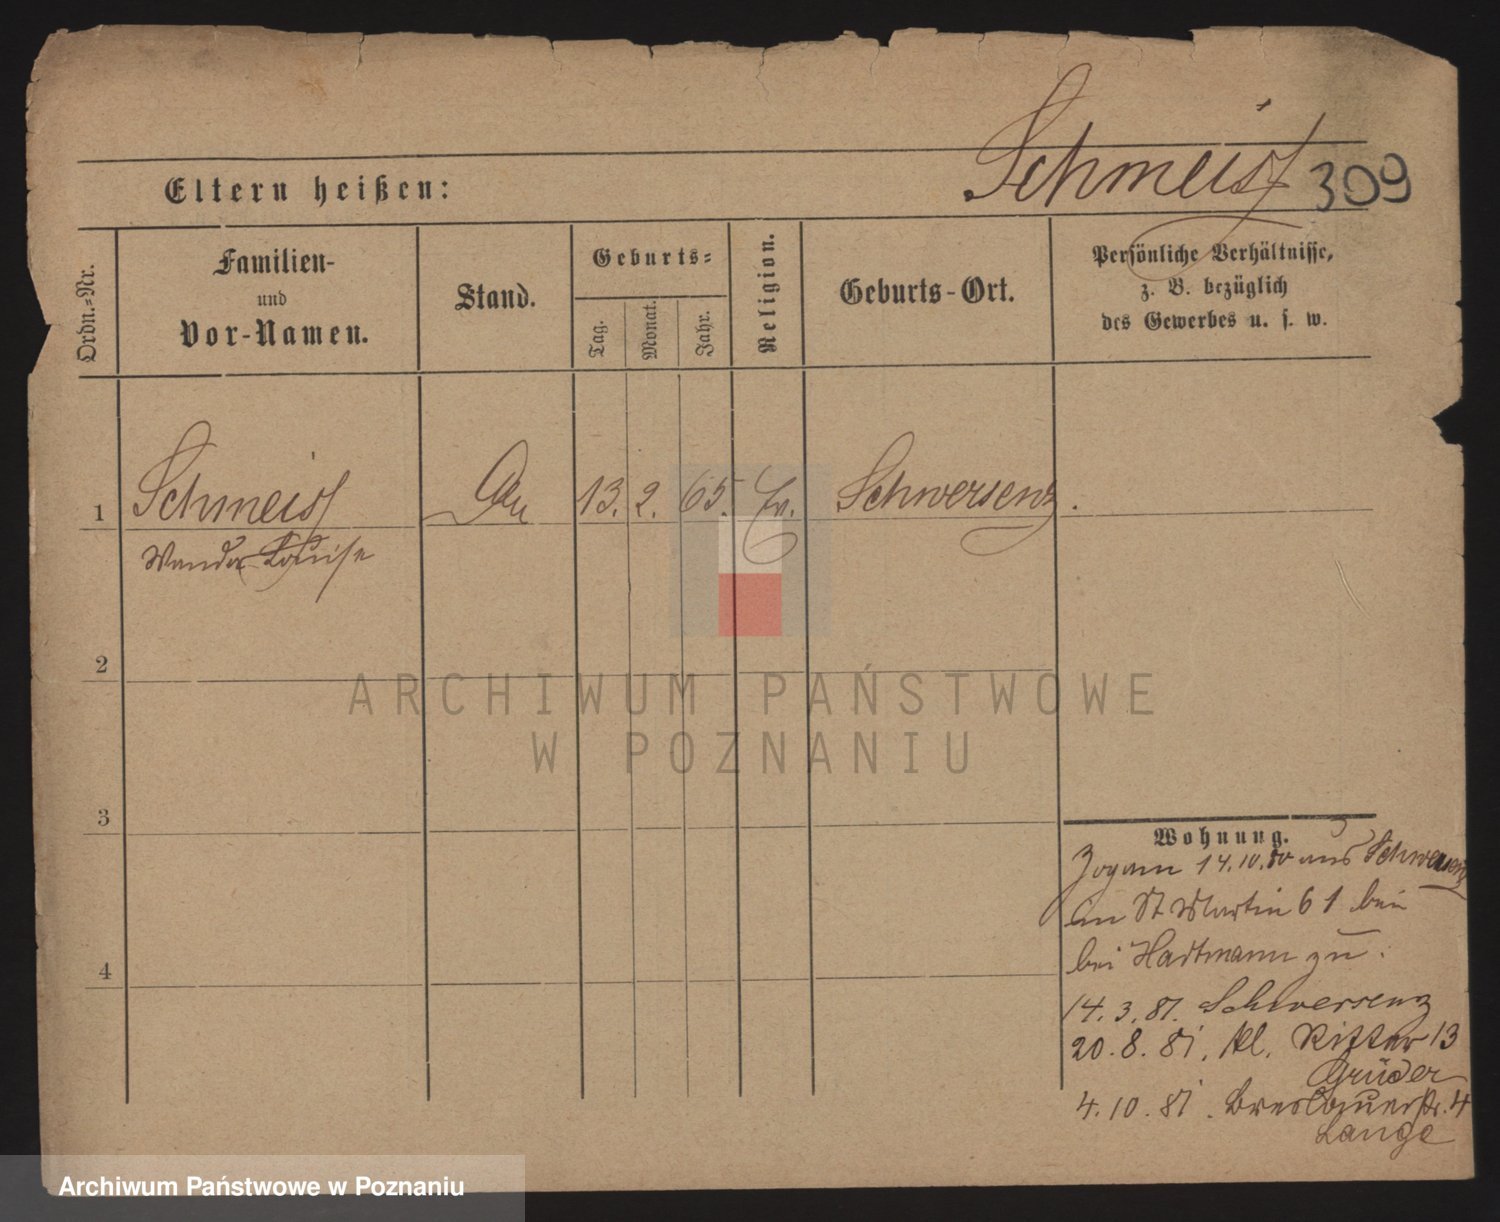 Schmeist 309
Eltern heißen:
Ordn.-Nr.
Familien-
und
Vor-Namen.
Stand.
Geburts-
Tag.
Monat.
Jahr.
Religion.
Geburts-Ort.
Persönliche Verhältnisse,
z. B. bezüglich
des Gewerbes u. s. w.
1 Schmeist 13. 2. 65. Ev. Schwersenz.
Wanda Louise
2
3
4
Wohnung.
Zog am 14.10.80 aus Schwersenz
an St Martin 61 bei
bei Hartmann zu.
14. 3. 81. Schwersenz
20. 8. 81. kl. Ritter 13
Grüder
4. 10. 81. Breslauerstr. 4
Lange
ARCHIWUM PAŃSTWOWE
W POZNANIU
Archiwum Państwowe w Poznaniu